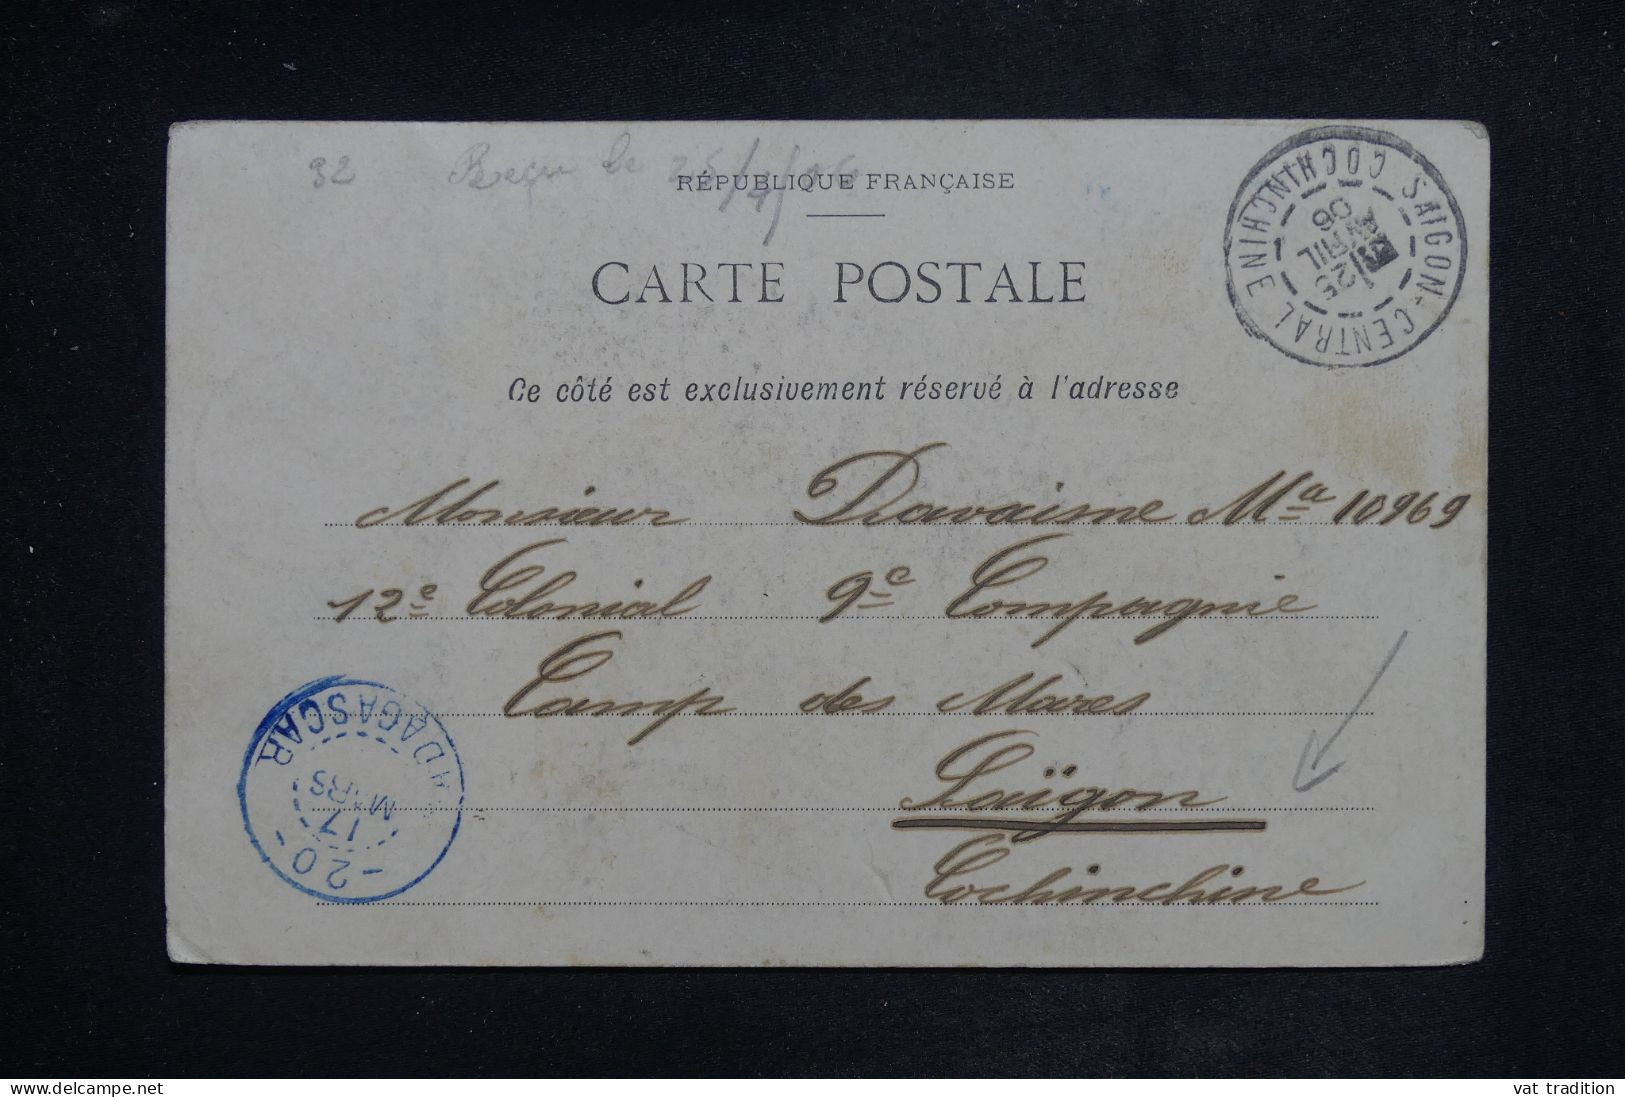 32 Reçu le 25/4/06
RÉPUBLIQUE FRANÇAISE
CARTE POSTALE
Ce côté est exclusivement réservé à l'adresse
SAIGON-CENTRAL COCHINCHINE
25
AVRIL
06
Monsieur Davaisne Mla 10969
12e Colonial 9e Compagnie
Camp des Mares
Saïgon
Cochinchine
MADAGASCAR
17
MARS
-20-
delcampe.net
vat tradition